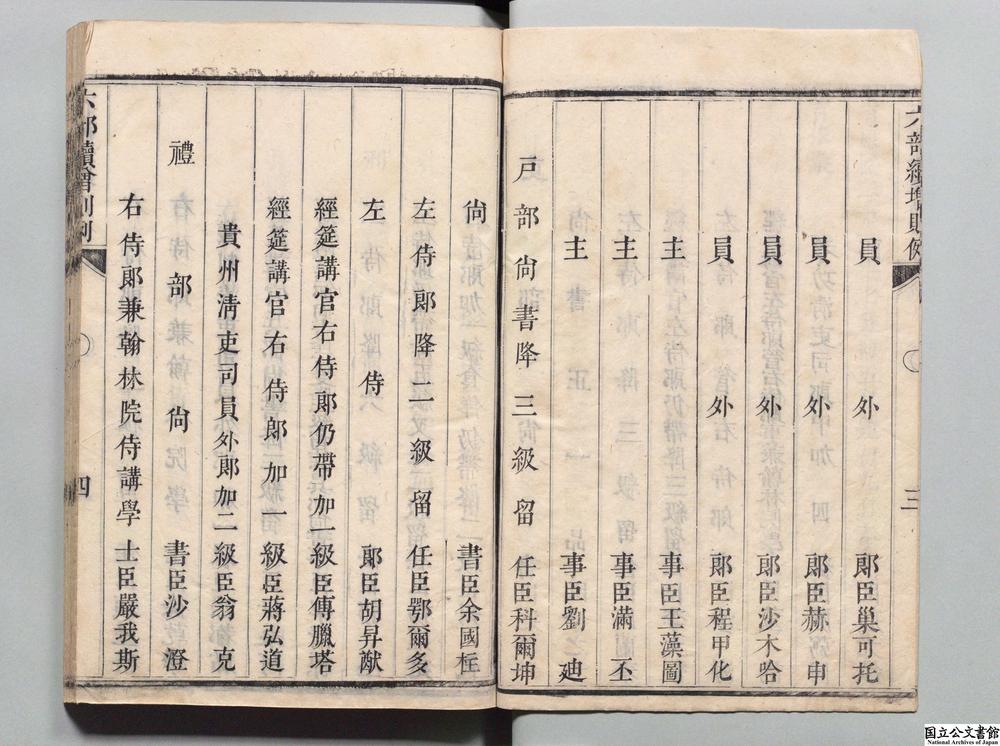 六部續增則例
三
員外郎臣巢可托
員外郎臣赫申
員外郎臣沙木哈
員外郎臣程甲化
主事臣王藻圖
主事臣滿丕
主事臣劉迪
戸部尙書降三級留任臣科爾坤
尙書臣余國柱
左侍郎降二級留任臣鄂爾多
左侍郎臣胡昇猷
經筵講官右侍郎仍帶加一級臣傅臘塔
經筵講官右侍郎加一級臣蔣弘道
貴州淸吏司員外郎加二級臣翁克
禮部尙書臣沙澄
右侍郎兼翰林院侍講學士臣嚴我斯
六部續增則例
四
国立公文書館
National Archives of Japan